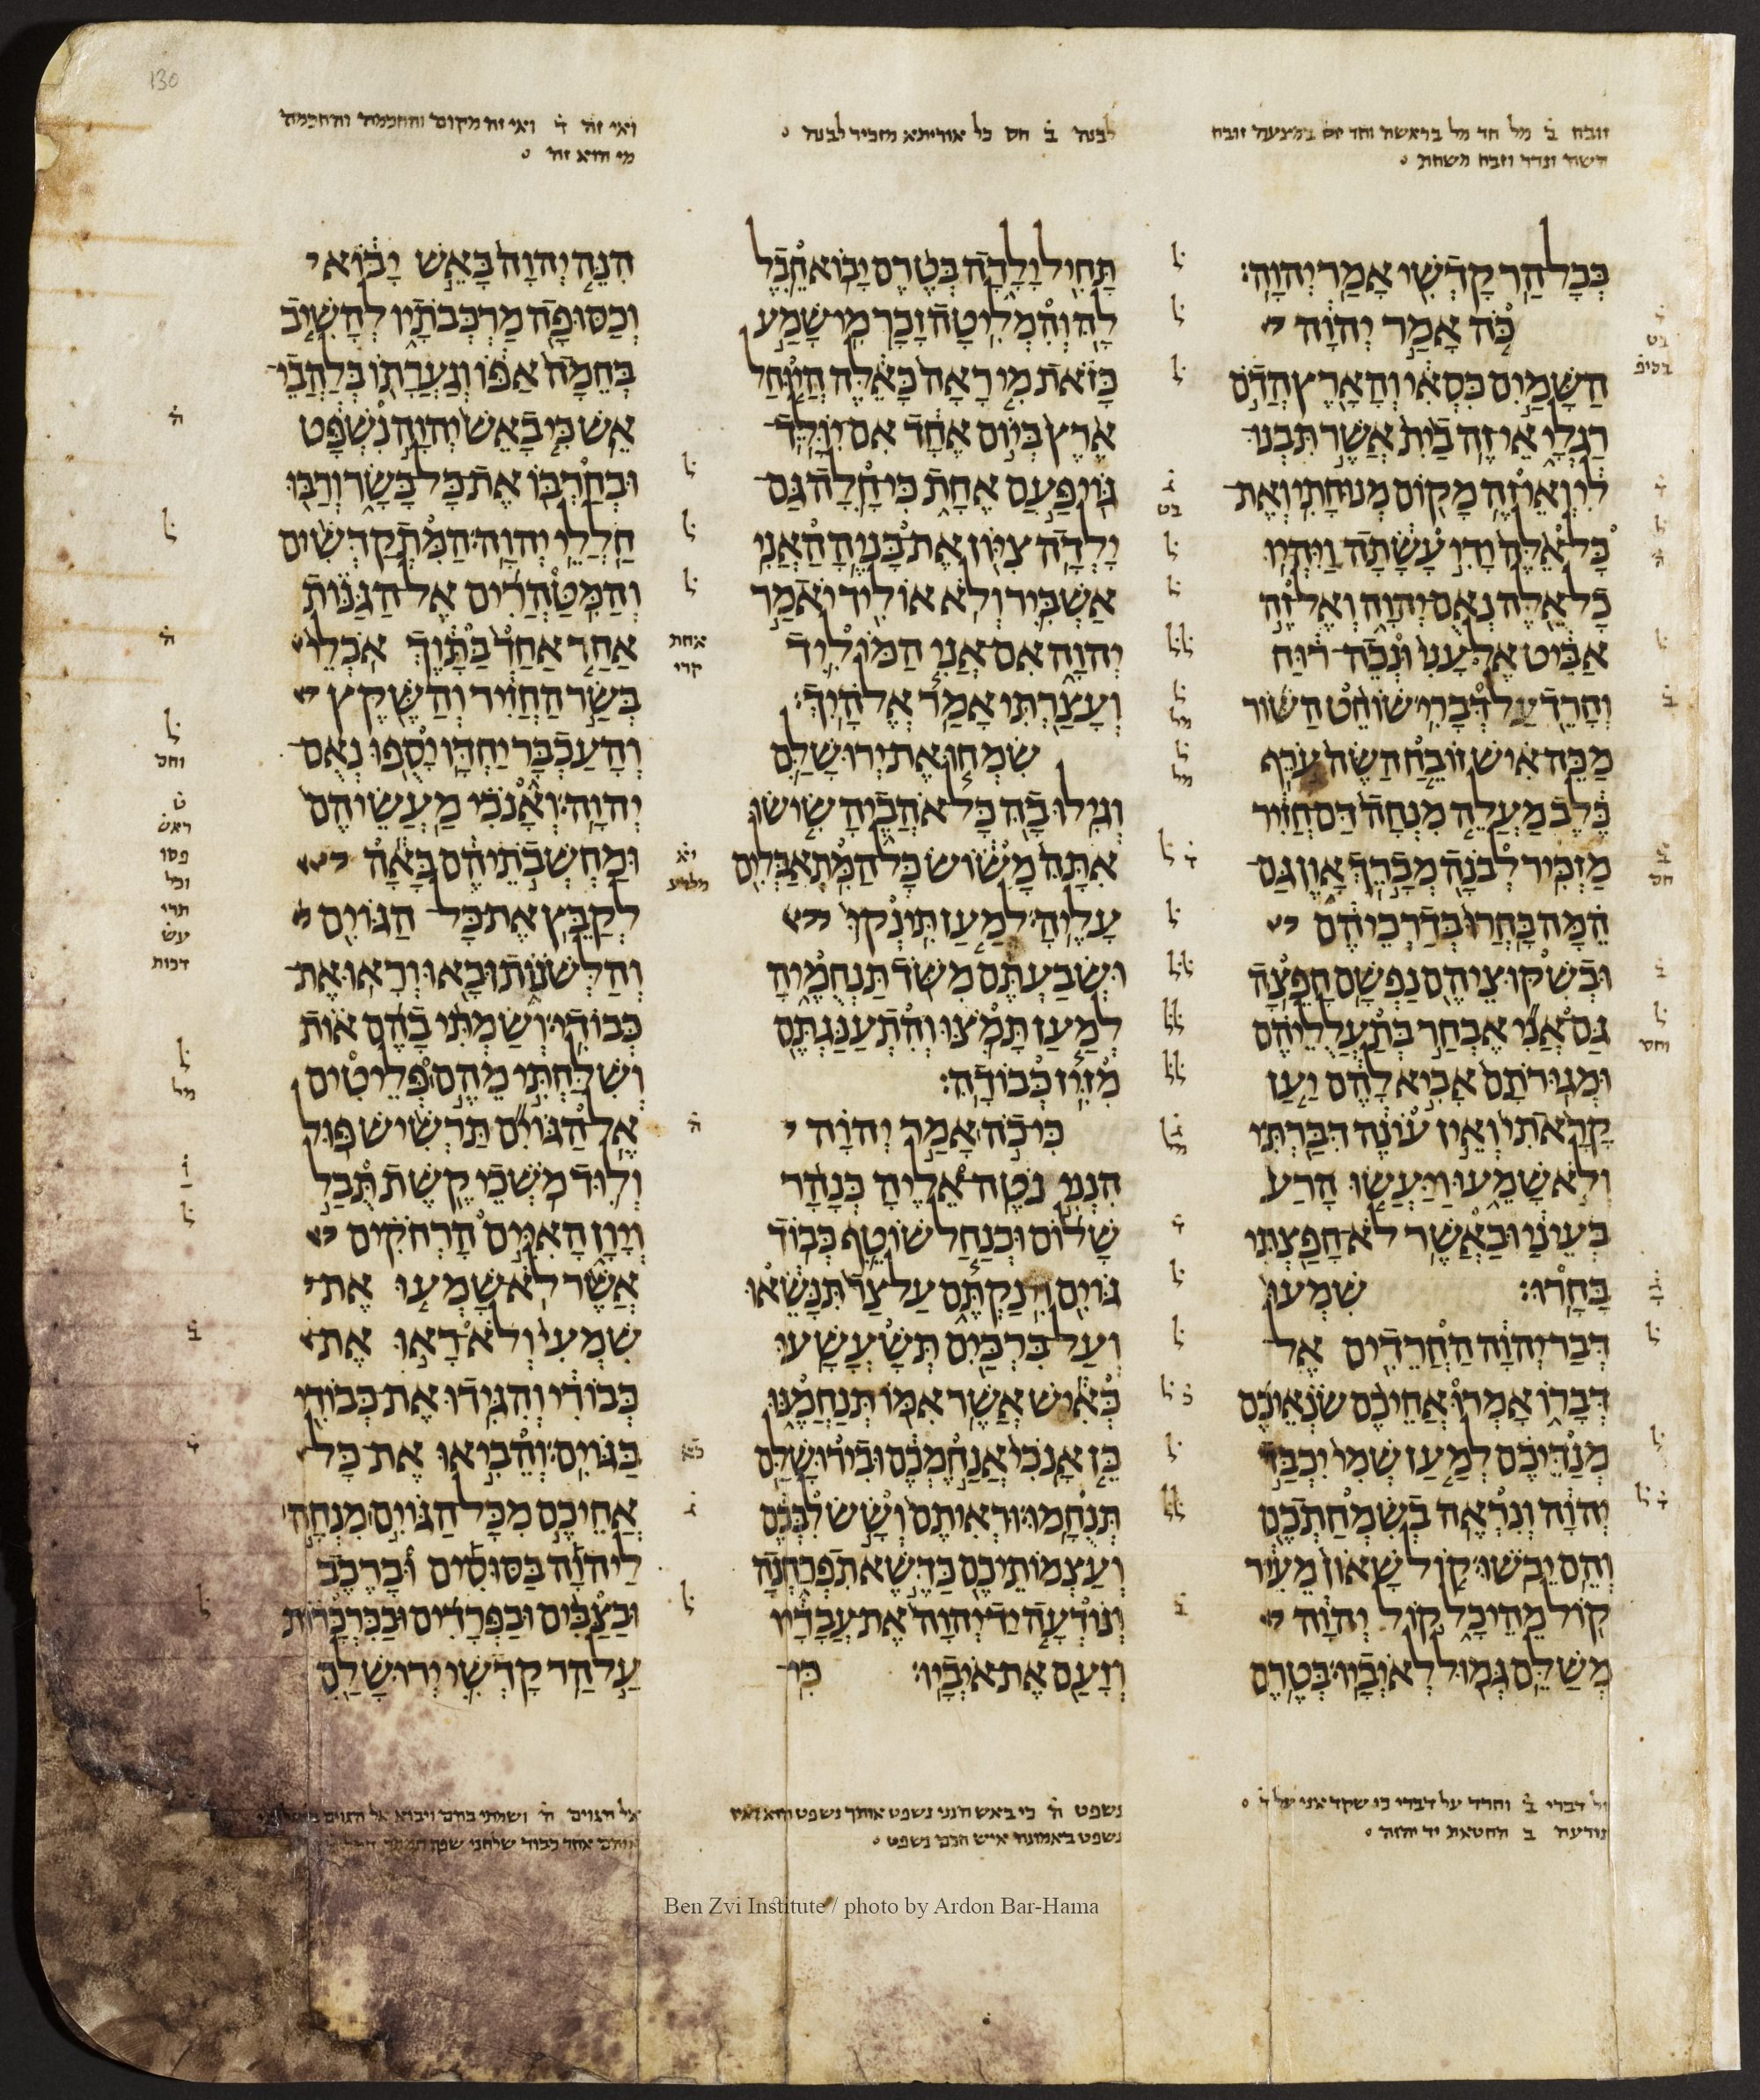 130
זובח ב מל חד מל בראשה וחד חס במצעה זובח
השה ונדר וזבח משחת
לבנה ב חס כל אוריתא מזכיר לבנה
ואי זה ד ואי זה מקום והחכמה והחכמה
מי הוא זה
בְּכָל הַר קָדְשִׁי אָמַר יְהוָה׃
כֹּה אָמַר יְהוָה
הַשָּׁמַיִם כִּסְאִי וְהָאָרֶץ הֲדֹם
רַגְלָי אֵי זֶה בַיִת אֲשֶׁר תִּבְנוּ
לִי וְאֵי זֶה מָקוֹם מְנוּחָתִי׃ וְאֶת
כָּל אֵלֶּה יָדִי עָשָׂתָה וַיִּהְיוּ
כָל אֵלֶּה נְאֻם יְהוָה וְאֶל זֶה
אַבִּיט אֶל עָנִי וּנְכֵה רוּחַ
וְחָרֵד עַל דְּבָרִי׃ שׁוֹחֵט הַשּׁוֹר
מַכֵּה אִישׁ זוֹבֵחַ הַשֶּׂה עֹרֵף
כֶּלֶב מַעֲלֵה מִנְחָה דַּם חֲזִיר
מַזְכִּיר לְבֹנָה מְבָרֵךְ אָוֶן גַּם
הֵמָּה בָּחֲרוּ בְּדַרְכֵיהֶם
וּבְשִׁקּוּצֵיהֶם נַפְשָׁם חָפֵצָה׃
גַּם אֲנִי אֶבְחַר בְּתַעֲלֻלֵיהֶם
וּמְגוּרֹתָם אָבִיא לָהֶם יַעַן
קָרָאתִי וְאֵין עוֹנֶה דִּבַּרְתִּי
וְלֹא שָׁמֵעוּ וַיַּעֲשׂוּ הָרַע
בְּעֵינַי וּבַאֲשֶׁר לֹא חָפַצְתִּי
בָּחָרוּ׃ שִׁמְעוּ
דְּבַר יְהוָה הַחֲרֵדִים אֶל
דְּבָרוֹ אָמְרוּ אֲחֵיכֶם שֹׂנְאֵיכֶם
מְנַדֵּיכֶם לְמַעַן שְׁמִי יִכְבַּד
יְהוָה וְנִרְאֶה בְשִׂמְחַתְכֶם
וְהֵם יֵבֹשׁוּ׃ קוֹל שָׁאוֹן מֵעִיר
קוֹל מֵהֵיכָל קוֹל יְהוָה
מְשַׁלֵּם גְּמוּל לְאֹיְבָיו׃ בְּטֶרֶם
תָּחִיל יָלָדָה בְּטֶרֶם יָבוֹא חֵבֶל
לָהּ וְהִמְלִיטָה זָכָר׃ מִי שָׁמַע
כָּזֹאת מִי רָאָה כָּאֵלֶּה הֲיוּחַל
אֶרֶץ בְּיוֹם אֶחָד אִם יִוָּלֵד
גּוֹי פַּעַם אֶחָת כִּי חָלָה גַּם
יָלְדָה צִיּוֹן אֶת בָּנֶיהָ׃ הַאֲנִי
אַשְׁבִּיר וְלֹא אוֹלִיד יֹאמַר
יְהוָה אִם אֲנִי הַמּוֹלִיד
וְעָצַרְתִּי אָמַר אֱלֹהָיִךְ׃
שִׂמְחוּ אֶת יְרוּשָׁלִַם
וְגִילוּ בָהּ כָּל אֹהֲבֶיהָ שִׂישׂוּ
אִתָּהּ מָשׂוֹשׂ כָּל הַמִּתְאַבְּלִים
עָלֶיהָ׃ לְמַעַן תִּינְקוּ
וּשְׂבַעְתֶּם מִשֹּׁד תַּנְחֻמֶיהָ
לְמַעַן תָּמֹצּוּ וְהִתְעַנַּגְתֶּם
מִזִּיז כְּבוֹדָהּ׃
כִּי כֹה אָמַר יְהוָה
הִנְנִי נֹטֶה אֵלֶיהָ כְּנָהָר
שָׁלוֹם וּכְנַחַל שׁוֹטֵף כְּבוֹד
גּוֹיִם וִינַקְתֶּם עַל צַד תִּנָּשֵׂאוּ
וְעַל בִּרְכַּיִם תְּשָׁעֳשָׁעוּ׃
כְּאִישׁ אֲשֶׁר אִמּוֹ תְּנַחֲמֶנּוּ
כֵּן אָנֹכִי אֲנַחֶמְכֶם וּבִירוּשָׁלִַם
תְּנֻחָמוּ׃ וּרְאִיתֶם וְשָׂשׂ לִבְּכֶם
וְעַצְמוֹתֵיכֶם כַּדֶּשֶׁא תִפְרַחְנָה
וְנוֹדְעָה יַד יְהוָה אֶת עֲבָדָיו
וְזָעַם אֶת אֹיְבָיו׃ כִּי
הִנֵּה יְהוָה בָּאֵשׁ יָבוֹא
וְכַסּוּפָה מַרְכְּבֹתָיו לְהָשִׁיב
בְּחֵמָה אַפּוֹ וְגַעֲרָתוֹ בְּלַהֲבֵי
אֵשׁ׃ כִּי בָאֵשׁ יְהוָה נִשְׁפָּט
וּבְחַרְבּוֹ אֶת כָּל בָּשָׂר וְרַבּוּ
חַלְלֵי יְהוָה׃ הַמִּתְקַדְּשִׁים
וְהַמִּטַּהֲרִים אֶל הַגַּנּוֹת
אַחַר אַחַד בַּתָּוֶךְ אֹכְלֵי
בְּשַׂר הַחֲזִיר וְהַשֶּׁקֶץ
וְהָעַכְבָּר יַחְדָּו יָסֻפוּ נְאֻם
יְהוָה׃ וְאָנֹכִי מַעֲשֵׂיהֶם
וּמַחְשְׁבֹתֵיהֶם בָּאָה
לְקַבֵּץ אֶת כָּל הַגּוֹיִם
וְהַלְּשֹׁנוֹת וּבָאוּ וְרָאוּ אֶת
כְּבוֹדִי׃ וְשַׂמְתִּי בָהֶם אוֹת
וְשִׁלַּחְתִּי מֵהֶם פְּלֵיטִים
אֶל הַגּוֹיִם תַּרְשִׁישׁ פּוּל
וְלוּד מֹשְׁכֵי קֶשֶׁת תֻּבַל
וְיָוָן הָאִיִּים הָרְחֹקִים
אֲשֶׁר לֹא שָׁמְעוּ אֶת
שִׁמְעִי וְלֹא רָאוּ אֶת
כְּבוֹדִי וְהִגִּידוּ אֶת כְּבוֹדִי
בַּגּוֹיִם׃ וְהֵבִיאוּ אֶת כָּל
אֲחֵיכֶם מִכָּל הַגּוֹיִם מִנְחָה
לַיהוָה בַּסּוּסִים וּבָרֶכֶב
וּבַצַּבִּים וּבַפְּרָדִים וּבַכִּרְכָּרוֹת
עַל הַר קָדְשִׁי יְרוּשָׁלִַם
על דברי ב וחרד על דברי כי שקד אני על ד
נודעה ב חטאת יד יהוה
נשפט ה כי באש הנני נשפט אותך נשפט
נשפט באמונה איש הנם נשפט
אל הגוים ה ושמתי בהם ויבוא אל הגוים
Ben Zvi Institute / photo by Ardon Bar-Hama